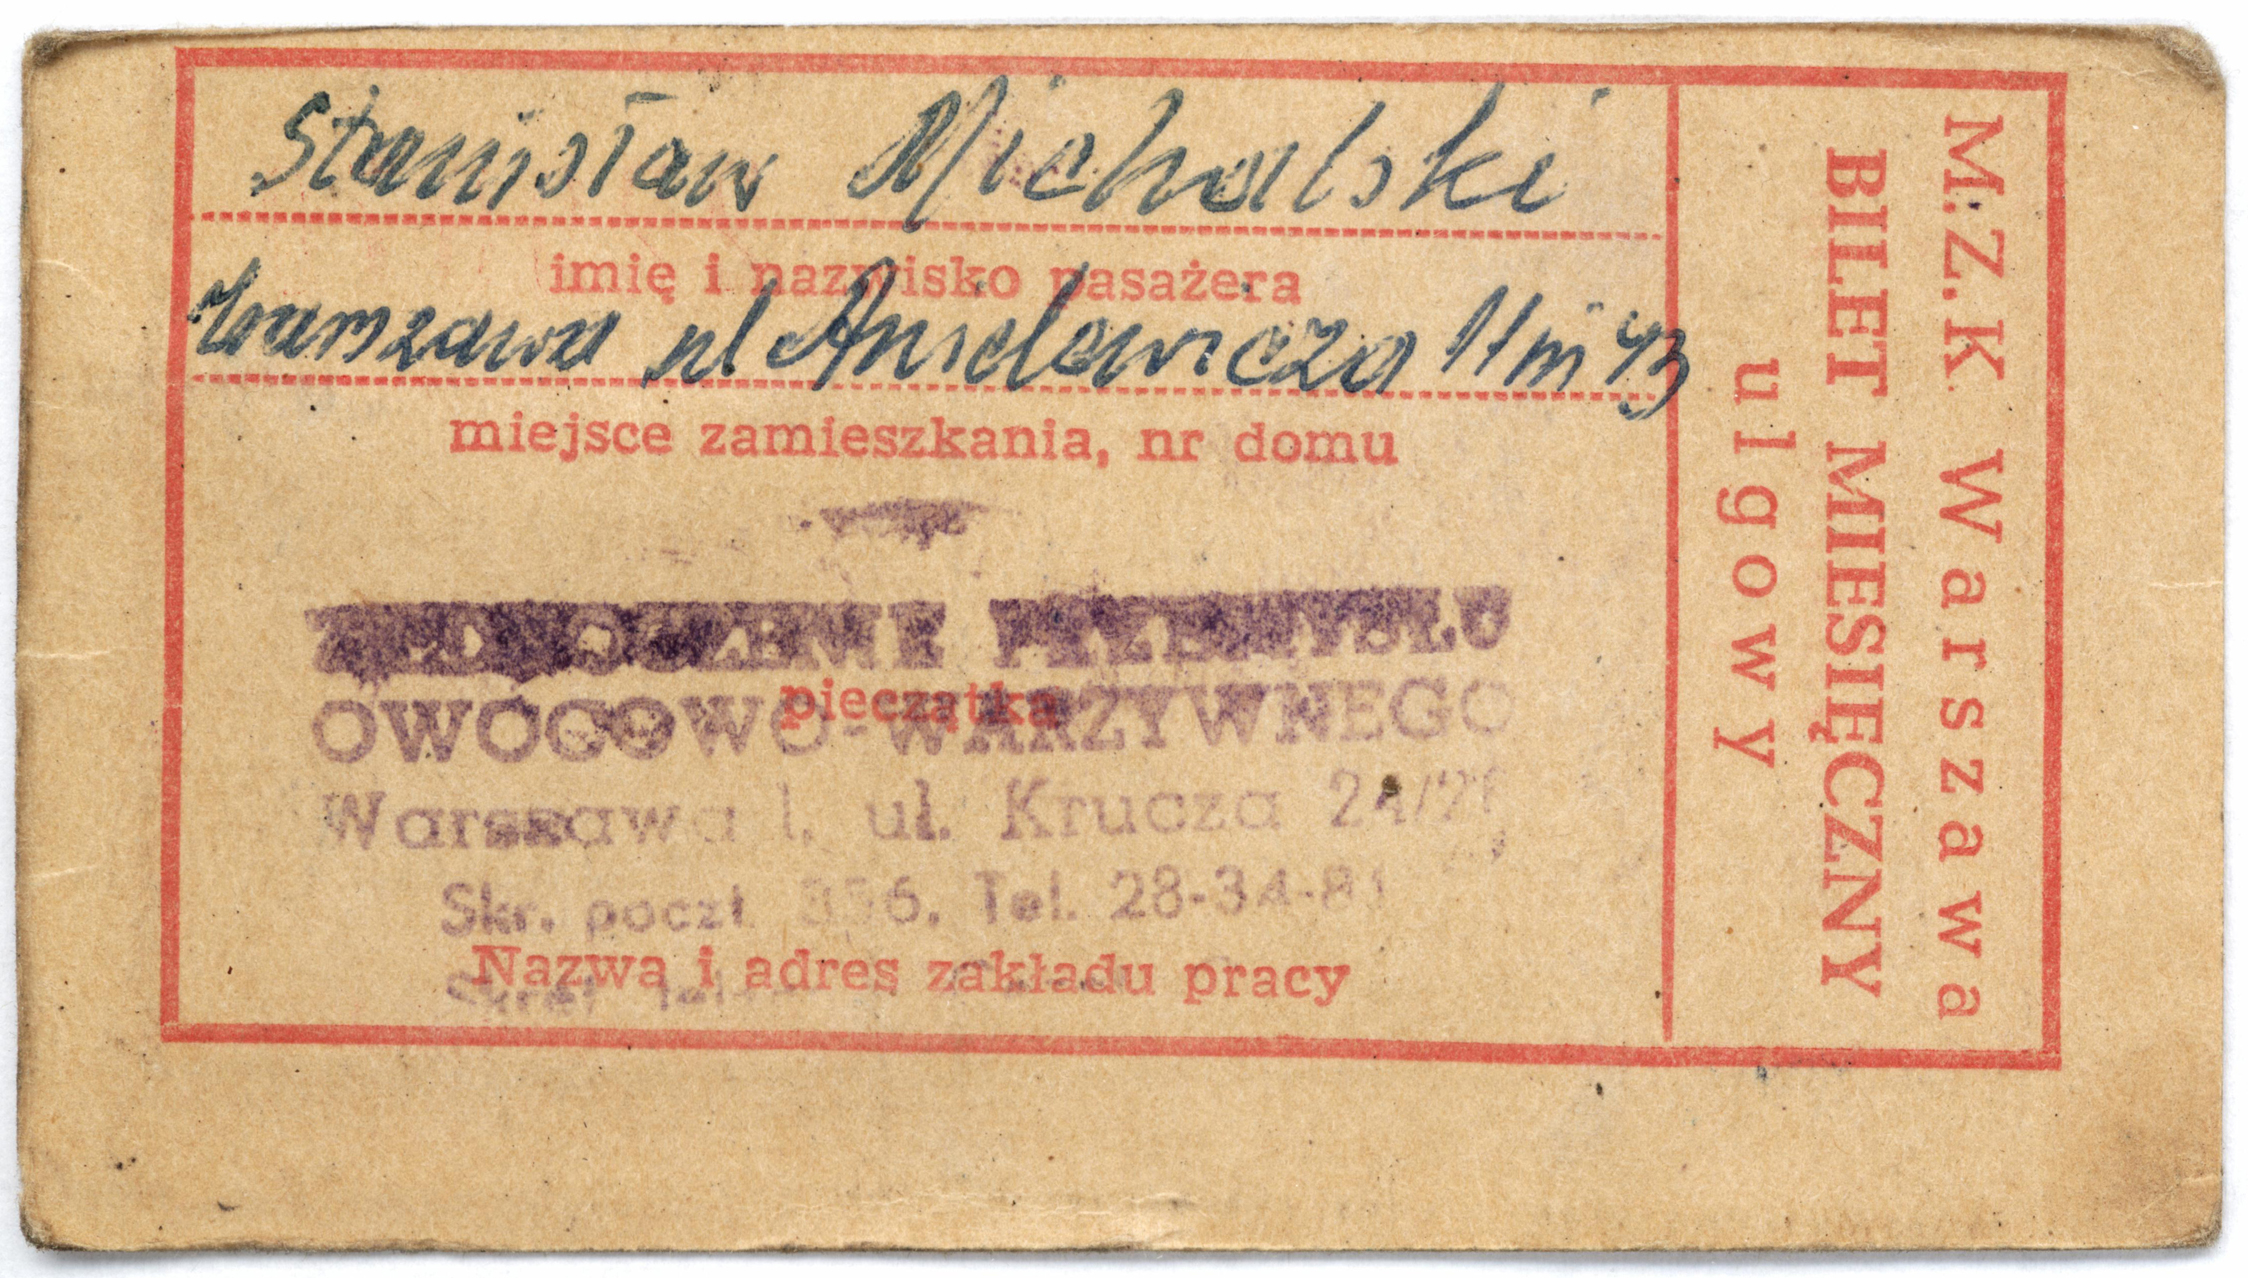 Stanisław Michalski
imię i nazwisko pasażera
Warszawa ul Anielewicza 11 m 43
miejsce zamieszkania, nr domu
ZJEDNOCZENIE PRZEMYSŁU
pieczątka
OWOCOWO-WARZYWNEGO
Warszawa 1. ul. Krucza 24/26
Skr. poczt 356. Tel. 28-34-81
Nazwa i adres zakładu pracy
M.Z.K Warszawa
BILET MIESIĘCZNY
ulgowy